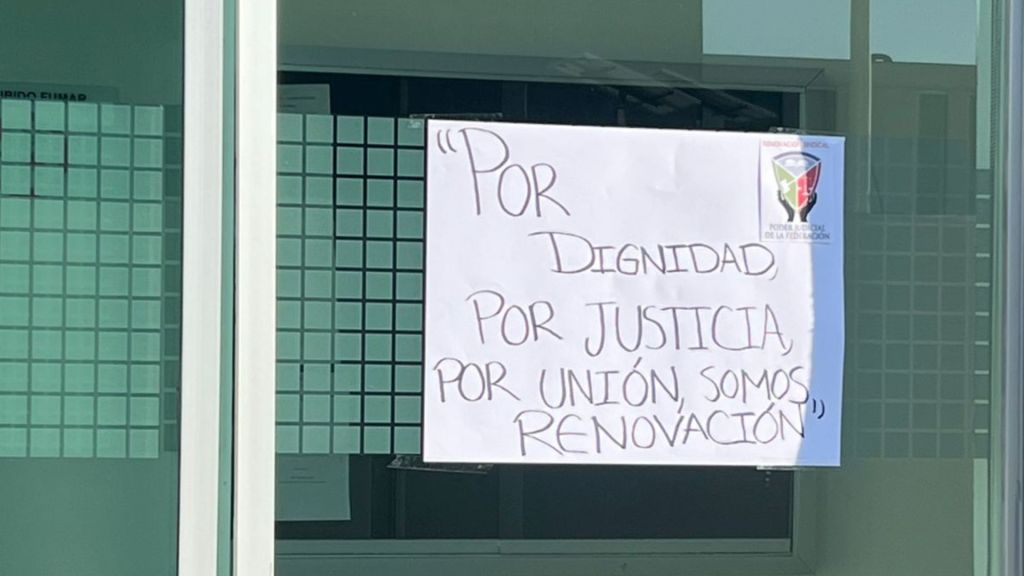 IBIDO FUMAR
RENOVACIÓN SINDICAL
PODER JUDICIAL
DE LA FEDERACIÓN
“POR
DIGNIDAD,
POR JUSTICIA,
POR UNIÓN, SOMOS
RENOVACIÓN”